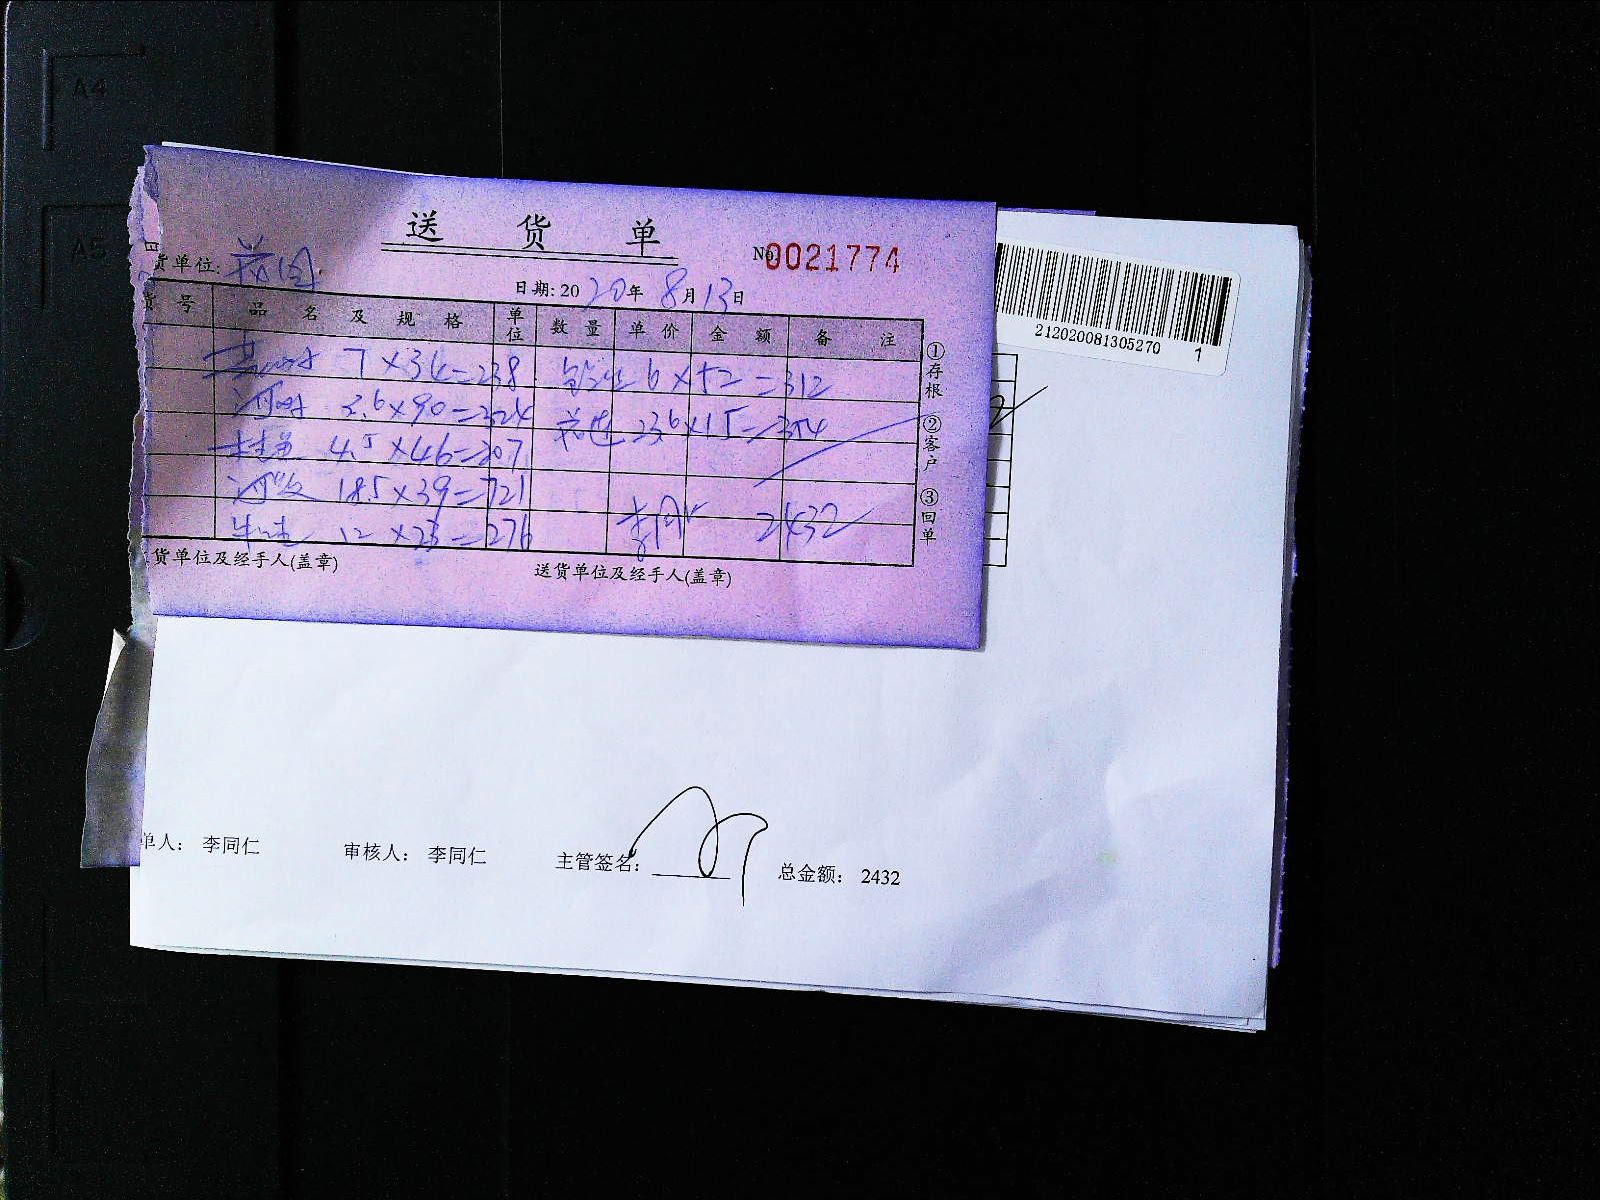 A4
A5
送 货 单
№ 0021774
货单位:
日期: 2020年 8月13日
货 号 品 名 及 规 格 单位 数 量 单 价 金 额 备 注
7×34=238 6×52=312
3.6×90=324 23.6×15=354
4.5×46=207
18.5×39=721
12×23=276 2432
①存根 ②客户 ③回单
货单位及经手人(盖章) 送货单位及经手人(盖章)
212020081305270
1
单人： 李同仁 审核人： 李同仁 主管签名： 总金额： 2432